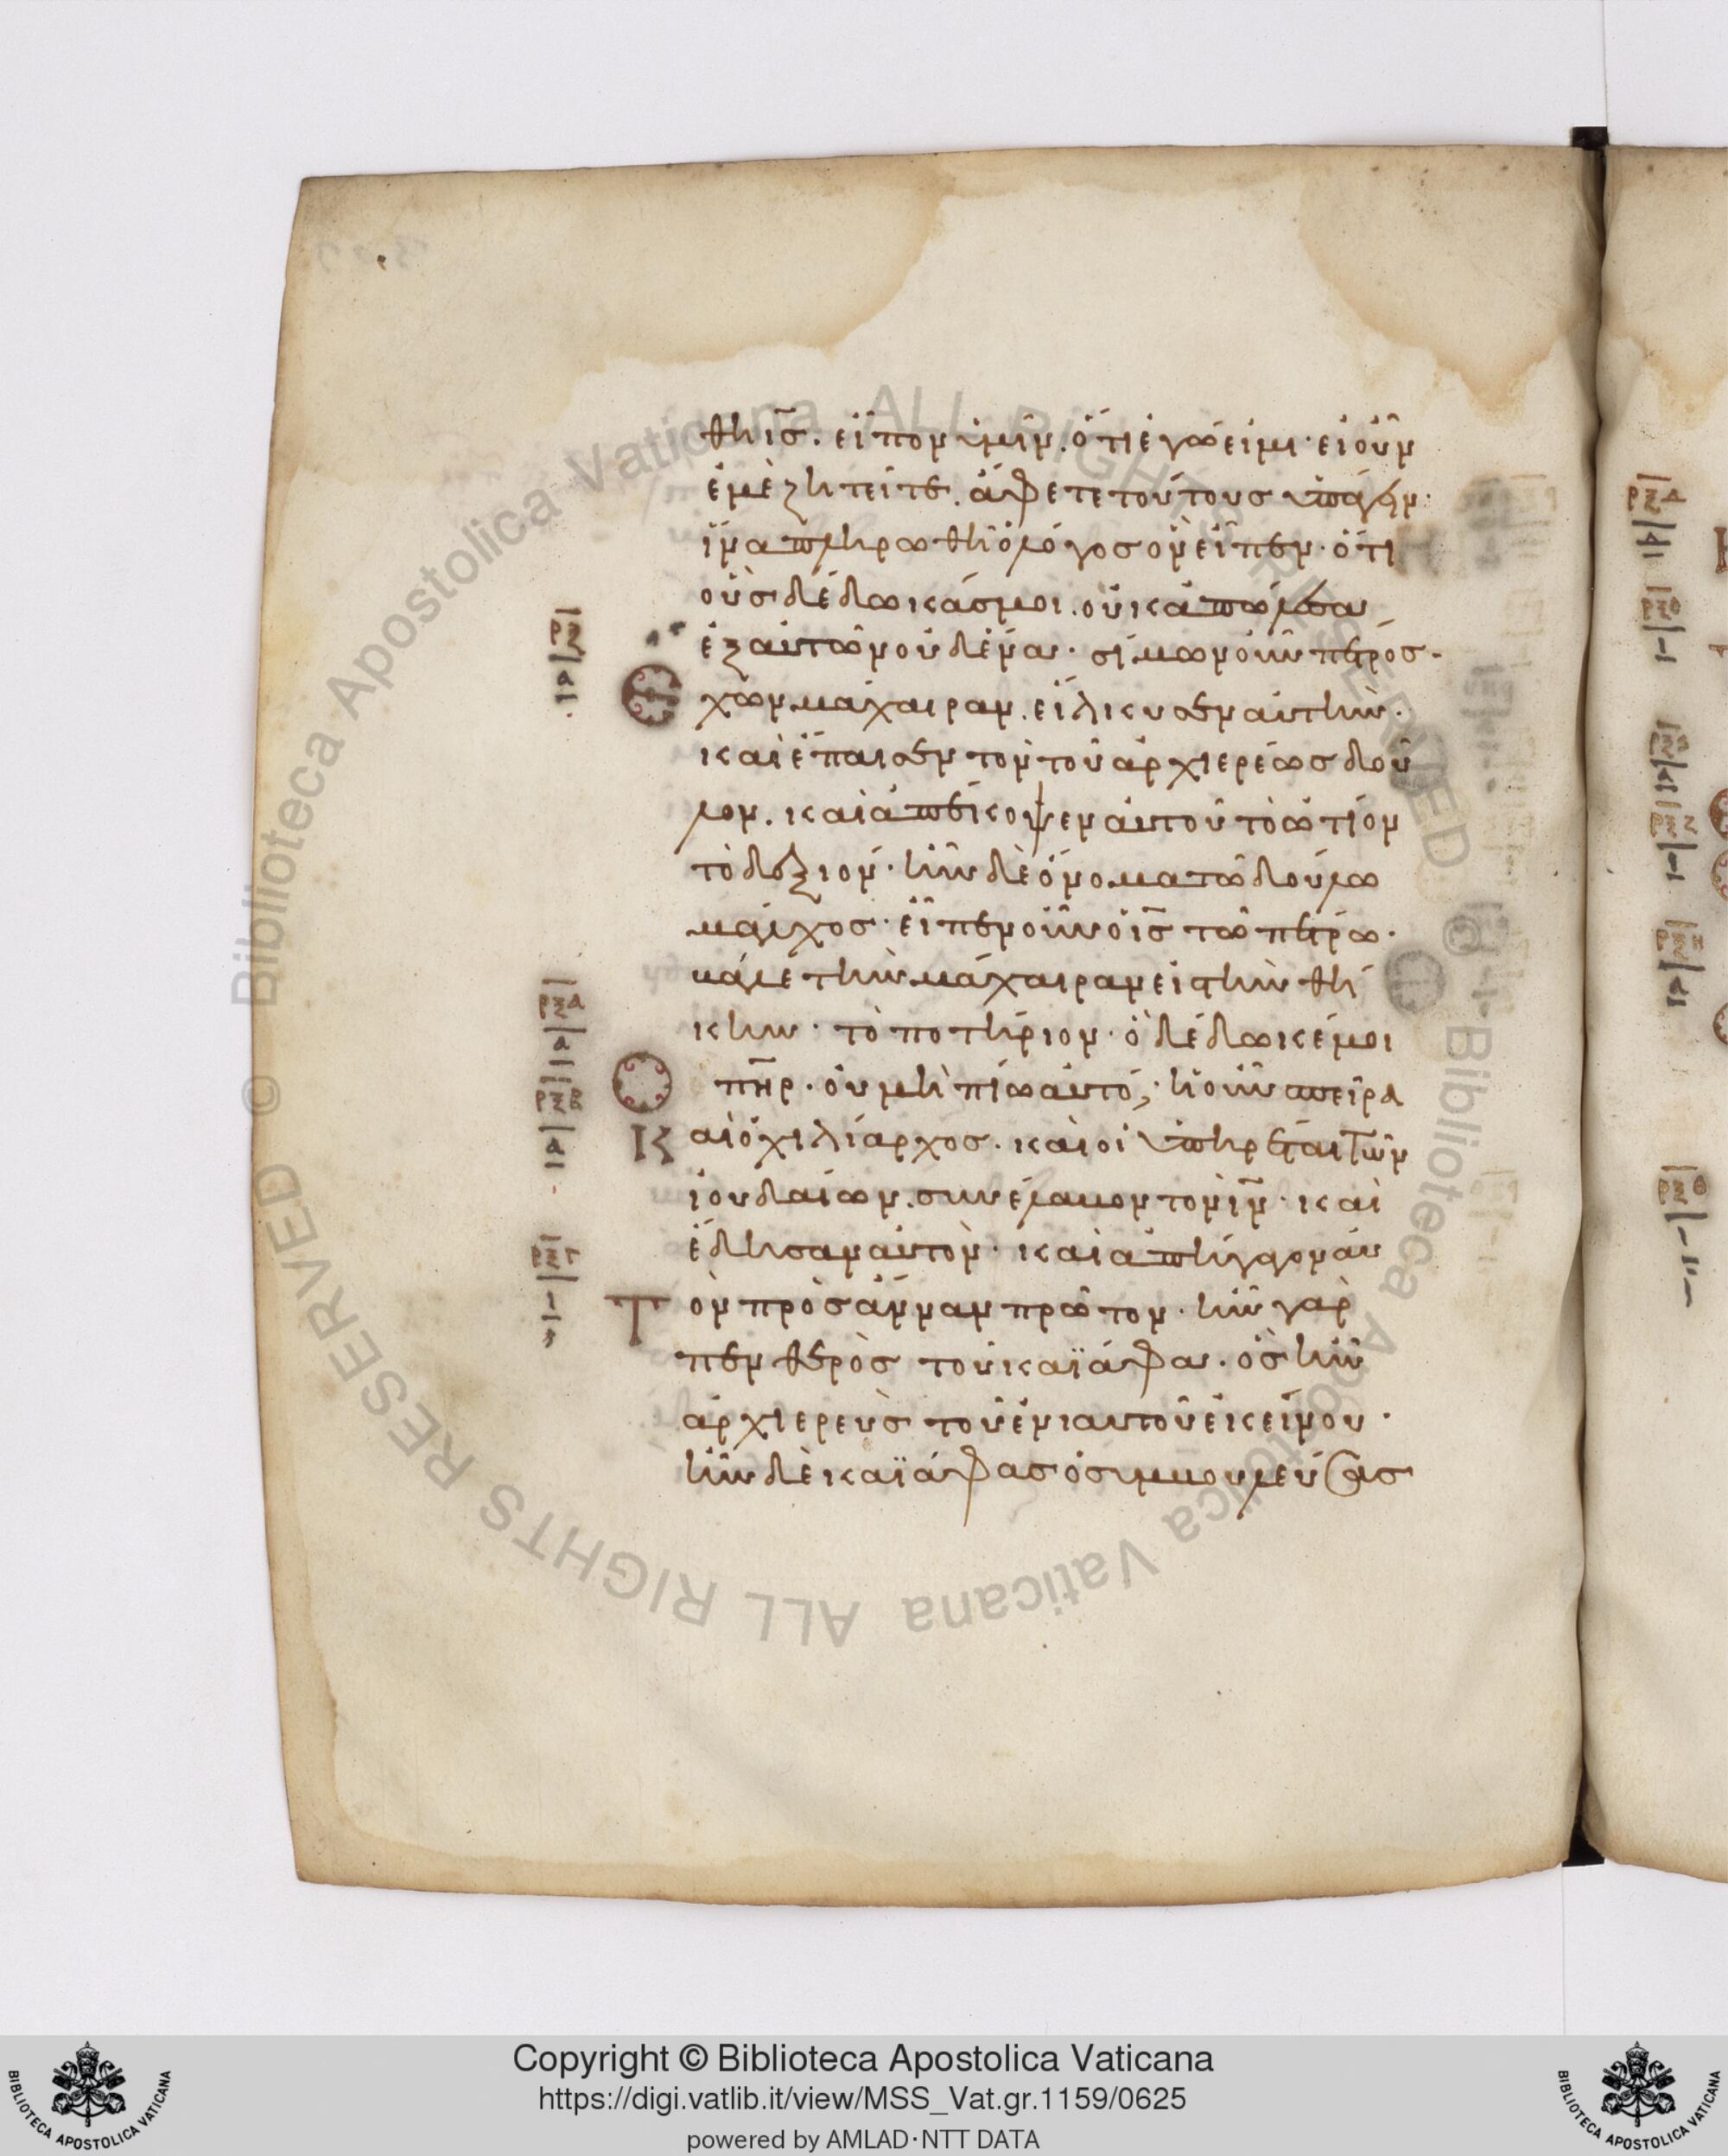 θη ι̅σ̅. εἶπον ὑμῖν. ὅτι ἐγώ εἰμι· εἰ οὖν
ἐμὲ ζητεῖτε. ἄφετε τούτους ὑπάγειν·
ἵνα πληρωθῆ ὁ λόγος ὃν εἶπεν· ὅτι
οὓς δέδωκάς μοι. οὐκ ἀπώλεσα
ἐξ αὐτῶν οὐδένα· σίμων οὖν πέτρος·
Ἔχων μάχαιραν. εἵλκυσεν αὐτὴν·
καὶ ἔπαισεν τὸν τοῦ ἀρχιερέως δοῦ
λον. καὶ ἀπέκοψεν αὐτοῦ τὸ ὠτίον
τὸ δεξιόν· ἦν δὲ ὄνομα τῶ δούλω
μάλχος· εἶπεν οὖν ὁ ι̅σ̅ τῶ πέτρω·
βάλε τὴν μάχαιραν εἰς τὴν θή
κην· τὸ ποτήριον· ὃ δέδωκέ μοι
Ὁ π̅η̅ρ̅· οὐ μὴ πίω αὐτό; ἡ οὖν σπεῖρα
Καὶ ὁ χιλίαρχος. καὶ οἱ ὑπηρέται τῶν
ἰουδαίων. συνέλαβον τὸν ι̅ν̅· καὶ
ἔδησαν αὐτὸν· καὶ ἀπήγαγον αὐ
Τὸν πρὸς ἄνναν πρῶτον· ἦν γὰρ
πενθερὸς τοῦ καϊάφα· ὃς ἦν
ἀρχιερεὺς τοῦ ἐνιαυτοῦ ἐκείνου·
ἦν δὲ καϊάφας ὁ συμβουλεύσας
ρξ
α
ρξα
α
ρξβ
α
ρξγ
ι
Copyright © Biblioteca Apostolica Vaticana
https://digi.vatlib.it/view/MSS_Vat.gr.1159/0625
powered by AMLAD·NTT DATA
BIBLIOTECA APOSTOLICA VATICANA
BIBLIOTECA APOSTOLICA VATICANA
© Biblioteca Apostolica Vaticana ALL RIGHTS RESERVED
© Biblioteca Apostolica Vaticana ALL RIGHTS RESERVED